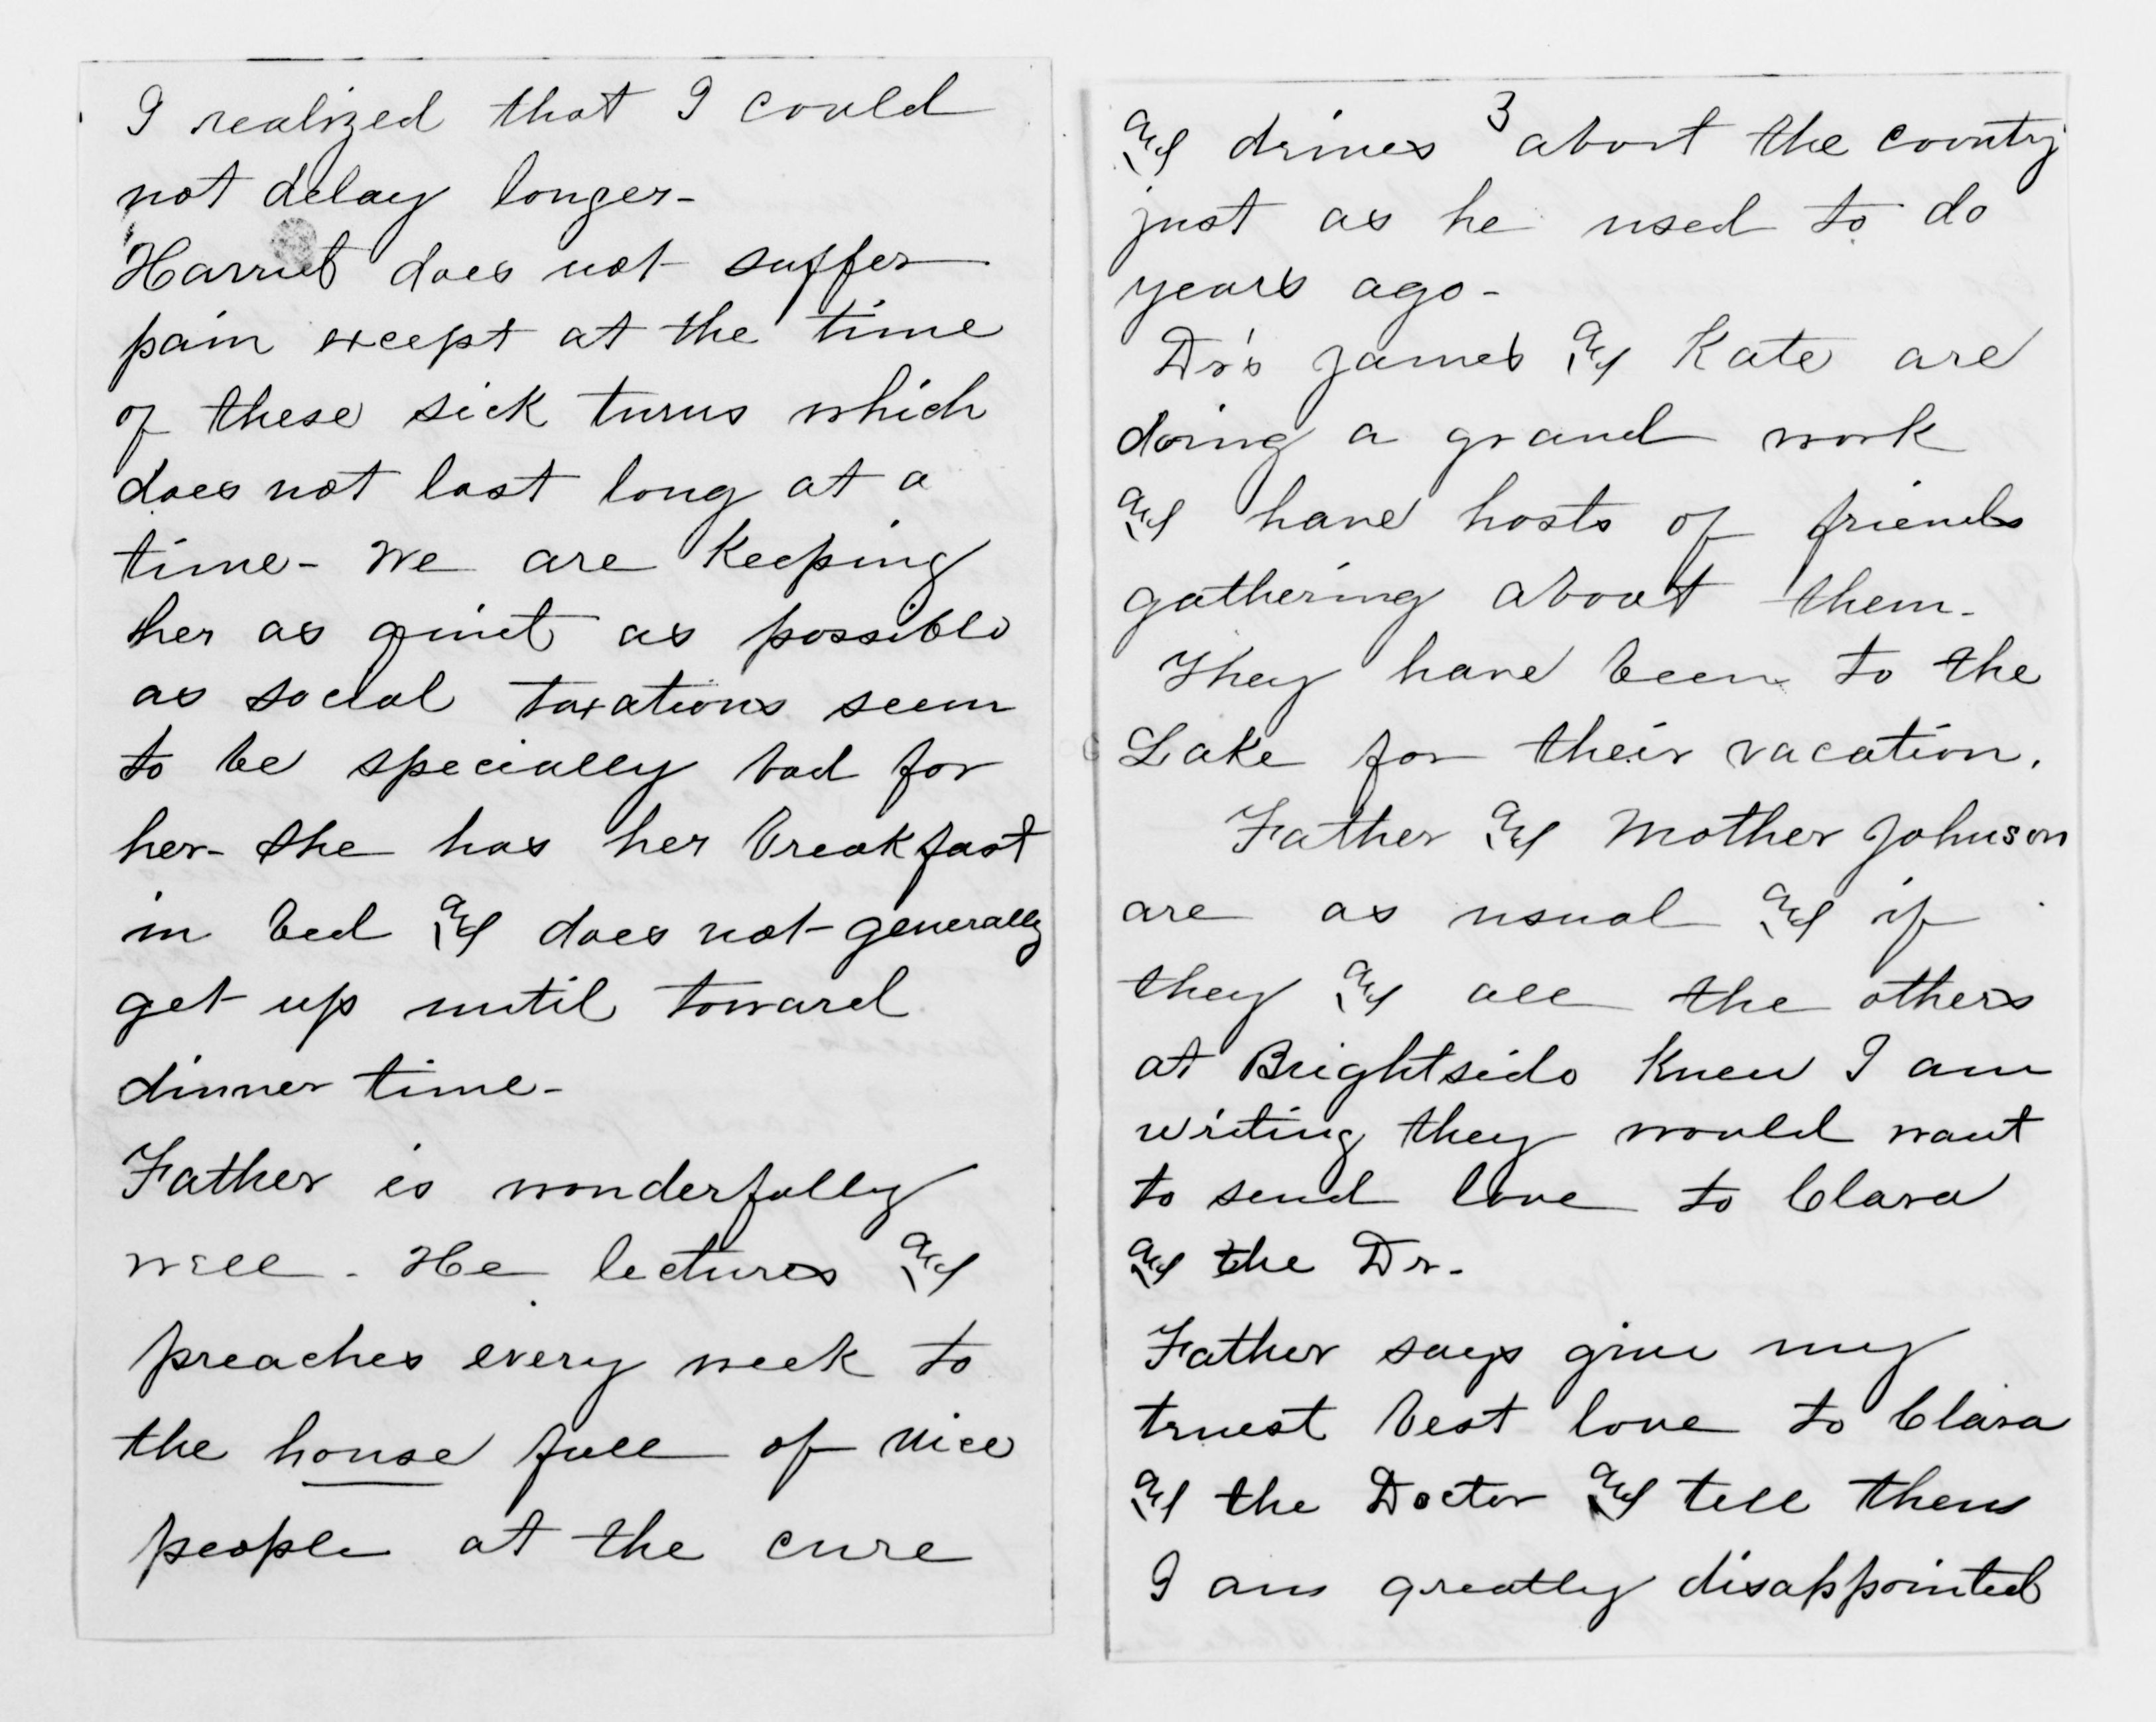 I realized that I could
not delay longer-
Harriet does not suffer
pain except at the time
of these sick turns which
does not last long at a
time- We are keeping
her as quiet as possible
as social taxations seem
to be specially bad for
her- She has her breakfast
in bed and does not generally
get up until toward
dinner time-
Father is wonderfully
well. He lectures and
preaches every week to
the house full of nice
people at the cure
3
and drives about the country
just as he used to do
years ago-
Dr's James and Kate are
doing a grand work
and have hosts of friends
gathering about them-
They have been to the
Lake for their vacation.
Father and Mother Johnson
are as usual and if
they and all the others
at Brightside knew I am
writing they would want
to send love to Clara
and the Dr-
Father says give my
truest best love to Clara
and the Doctor and tell them
I am greatly disappointed